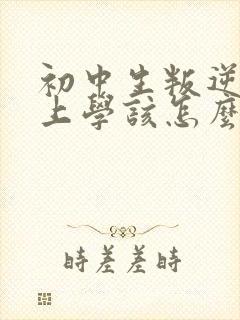 初中生叛逆
上學該怎麼
時差差時